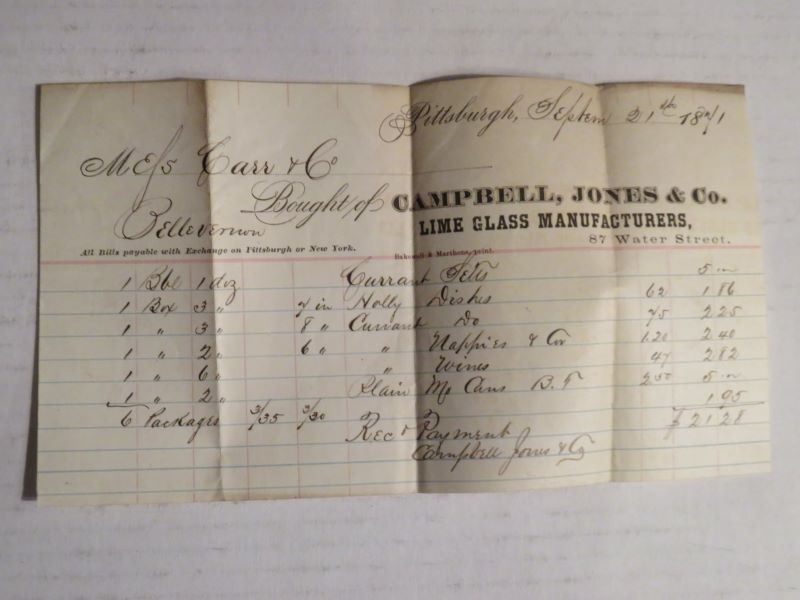 Pittsburgh, Septem 21st 1871
Mess Carr & Co
Bought of CAMPBELL, JONES & Co.
Bellevernon
LIME GLASS MANUFACTURERS,
87 Water Street.
All Bills payable with Exchange on Pittsburgh or New York.
Bakewell & Marthens, print.
1 Bbl 1 doz Currant Setts 5 00
1 Box 3 " 7 in Holly Dishes 62 1 86
1 " 3 " 8 " Currant Do 75 2 25
1 " 2 " 6 " " Nappies & Cov 1 20 2 40
1 " 6 " " Wines 47 2 82
1 " 2 " Plain Mo Cans B.T 2 50 5 00
6 Packages 3/35 3/30 1 95
$ 21 28
Recd Payment
Campbell Jones & Co